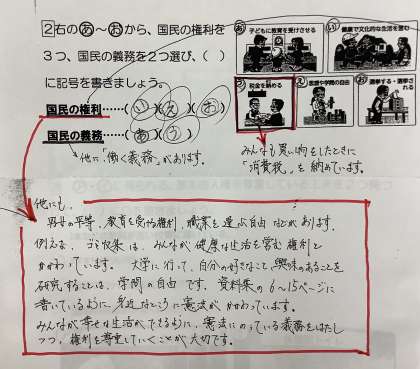 2 右のあ〜おから、国民の権利を
3つ、国民の義務を2つ選び、( )
に記号を書きましょう。
国民の権利……( い )( え )( お )
国民の義務……( あ )( う )
あ 子どもに教育を受けさせる
い 健康で文化的な生活を営む
う 税金を納める
え 思想や学問の自由
お 選挙する・選挙される
→他に「働く義務」があります。
みんなも買い物をしたときに
「消費税」を納めています。
他にも、
男女の平等、教育を受ける権利、職業を選ぶ自由などがあります。
例えば、ゴミ収集は、みんなが健康な生活を営む権利と
かかわっています。大学に行って、自分の好きなこと、興味のあることを
研究することは、学問の自由です。資料集の6〜15ページに
書いているように、身近なところに憲法がかかわっています。
みんなが幸せな生活ができるように、憲法にのっている義務をはたし
つつ、権利を尊重していくことが大切です。